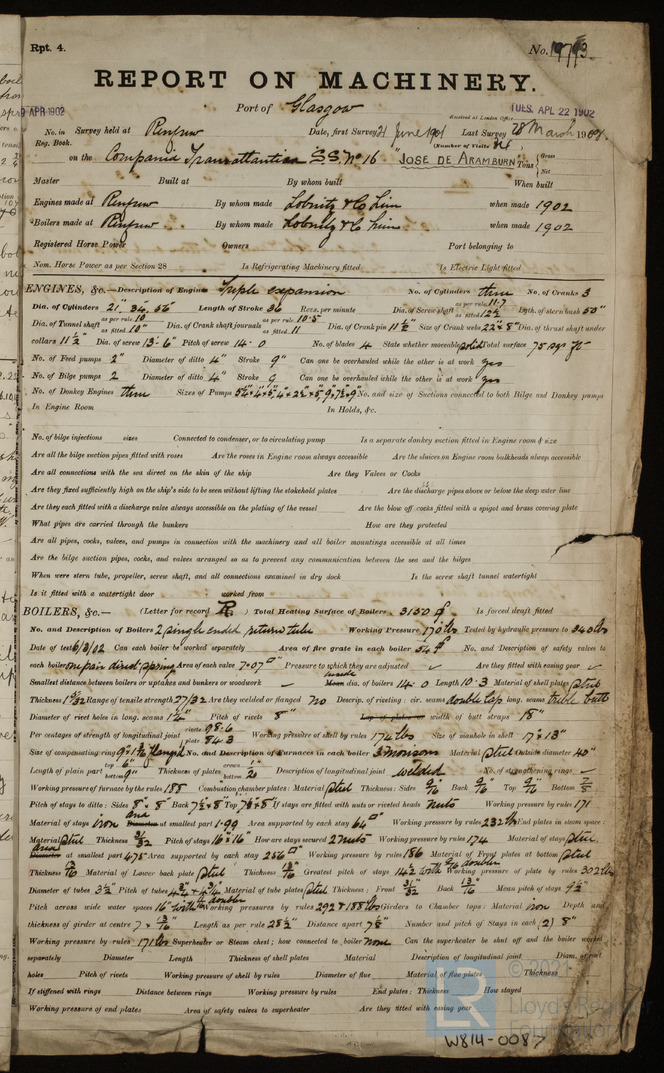 Rpt. 4.
No. 19793.
REPORT ON MACHINERY.
Port of Glasgow
9 APR 1902
Received at London Office
TUES. APL 22 1902
No. in Survey held at Renfrew Date, first Survey 21 June 1901 Last Survey 28 March 190
Reg. Book. (Number of Visits
on the Compania Transatlantica SS. No 16 "JOSE DE ARAMBURN" Tons Gross Net
Master Built at By whom built When built
Engines made at Renfrew By whom made Lobnitz & Co Lim when made 1902
Boilers made at Renfrew By whom made Lobnitz & Co Lim when made 1902
Registered Horse Power Owners Port belonging to
Nom. Horse Power as per Section 28 Is Refrigerating Machinery fitted Is Electric Light fitted
ENGINES, &c.—Description of Engines Triple expansion No. of Cylinders three No. of Cranks 3
Dia. of Cylinders 21", 34, 56" Length of Stroke 36 Revs. per minute Dia. of Screw shaft as per rule 11.7 as fitted 12½ Lgth. of stern bush 50"
Dia. of Tunnel shaft as per rule 10 as fitted 10" Dia. of Crank shaft journals as per rule 10.5 as fitted 11 Dia. of Crank pin 11½" Size of Crank webs 22 × 8" Dia. of thrust shaft under
collars 11½" Dia. of screw 13-6" Pitch of screw 14-0 No. of blades 4 State whether moveable solid Total surface 75 sq ft
No. of Feed pumps 2" Diameter of ditto 4" Stroke 9" Can one be overhauled while the other is at work yes
No. of Bilge pumps 2 Diameter of ditto 4" Stroke 9 Can one be overhauled while the other is at work yes
No. of Donkey Engines three Sizes of Pumps No. and size of Suctions connected to both Bilge and Donkey pumps
In Engine Room In Holds, &c.
No. of bilge injections sizes Connected to condenser, or to circulating pump Is a separate donkey suction fitted in Engine room & size
Are all the bilge suction pipes fitted with roses Are the roses in Engine room always accessible Are the sluices on Engine room bulkheads always accessible
Are all connections with the sea direct on the skin of the ship Are they Valves or Cocks
Are they fixed sufficiently high on the ship's side to be seen without lifting the stokehold plates Are the discharge pipes above or below the deep water line
Are they each fitted with a discharge valve always accessible on the plating of the vessel Are the blow off cocks fitted with a spigot and brass covering plate
What pipes are carried through the bunkers How are they protected
Are all pipes, cocks, valves, and pumps in connection with the machinery and all boiler mountings accessible at all times
Are the bilge suction pipes, cocks, and valves arranged so as to prevent any communication between the sea and the bilges
When were stern tube, propeller, screw shaft, and all connections examined in dry dock Is the screw shaft tunnel watertight
Is it fitted with a watertight door worked from
BOILERS, &c.— (Letter for record R. ) Total Heating Surface of Boilers 3150 Is forced draft fitted
No. and Description of Boilers 2 single ended return tube Working Pressure 170 lbs Tested by hydraulic pressure to 340 lbs
Date of test 6/3/02 Can each boiler be worked separately Area of fire grate in each boiler No. and Description of safety valves to
each boiler one pair direct spring Area of each valve 7.07 Pressure to which they are adjusted Are they fitted with easing gear
Smallest distance between boilers or uptakes and bunkers or woodwork inside Mean dia. of boilers 14-0 Length 10-3 Material of shell plates steel
Thickness Range of tensile strength 27/32 Are they welded or flanged no Descrip. of riveting: cir. seams double lap long. seams treble butt
Diameter of rivet holes in long. seams 1¼" Pitch of rivets 8" Lap of plates or width of butt straps 18"
Per centages of strength of longitudinal joint rivets 98.6 plate 84.3 Working pressure of shell by rules 174 lbs Size of manhole in shell 17 × 13"
Size of compensating ring flanged No. and Description of Furnaces in each boiler 3 morisons Material steel Outside diameter 40"
Length of plain part top 6" bottom 9" Thickness of plates crown bottom Description of longitudinal joint welded No. of strengthening rings
Working pressure of furnace by the rules 188 Combustion chamber plates: Material steel Thickness: Sides 9/16 Back 9/16 Top 9/16 Bottom 7/8
Pitch of stays to ditto: Sides 8" × 8" Back 7½ × 8 Top 7½ × 8 If stays are fitted with nuts or riveted heads nuts Working pressure by rules 171
Material of stays iron area Diameter at smallest part 1.99 Area supported by each stay 64 Working pressure by rules 232 lbs End plates in steam space:
Material steel Thickness Pitch of stays 16 × 16" How are stays secured 2 nuts Working pressure by rules 174 Material of stays steel
area Diameter at smallest part 4.78 Area supported by each stay 256 Working pressure by rules 186 Material of Front plates at bottom steel
Thickness Material of Lower back plate steel Thickness Greatest pitch of stays 14½ with double Working pressure of plate by rules 302 lbs
Diameter of tubes 3½" Pitch of tubes 4¾ × 4¾ Material of tube plates steel Thickness: Front Back 13/16 Mean pitch of stays 9½"
Pitch across wide water spaces 16" with double Working pressures by rules 292 & 188 lbs Girders to Chamber tops: Material iron Depth and
thickness of girder at centre Length as per rule 28½" Distance apart Number and pitch of Stays in each (2) 8"
Working pressure by rules 171 lbs Superheater or Steam chest; how connected to boiler none Can the superheater be shut off and the boiler worked
separately Diameter Length Thickness of shell plates Material Description of longitudinal joint Diam. of rivet
holes Pitch of rivets Working pressure of shell by rules Diameter of flue Material of flue plates Thickness
If stiffened with rings Distance between rings Working pressure by rules End plates: Thickness How stayed
Working pressure of end plates Area of safety valves to superheater Are they fitted with easing gear
© 2021
Lloyd's Register
Foundation
W814-0087